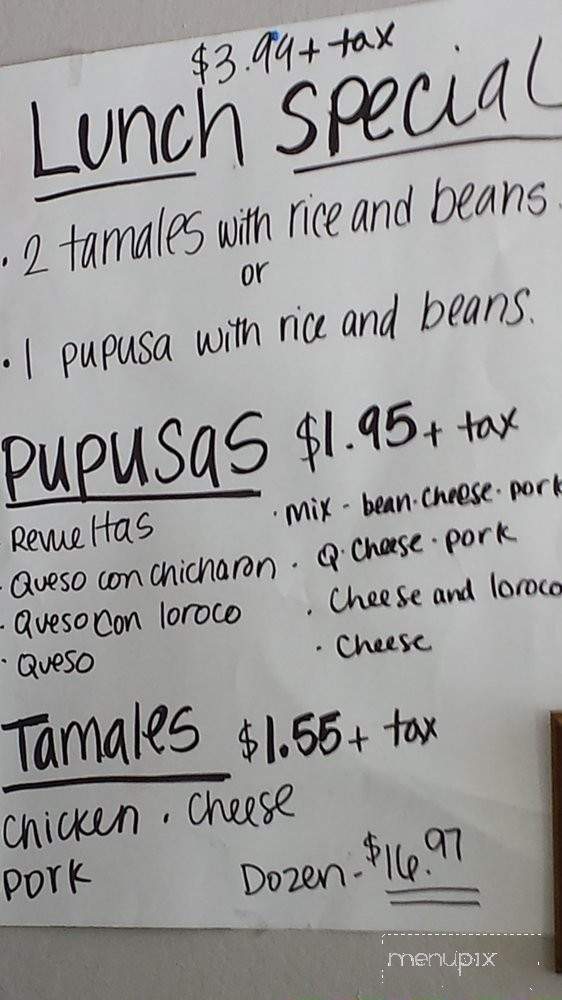 $3.99 + tax
Lunch Special
• 2 tamales with rice and beans.
or
• 1 pupusa with rice and beans.
Pupusas $1.95 + tax
Revueltas
• mix - bean. cheese. pork
• Queso con chicharon
• Q. Cheese. pork
• Queso con loroco
• Cheese and loroco
• Queso
• Cheese
Tamales $1.55 + tax
Chicken . Cheese
Pork
Dozen - $16.97
menupix